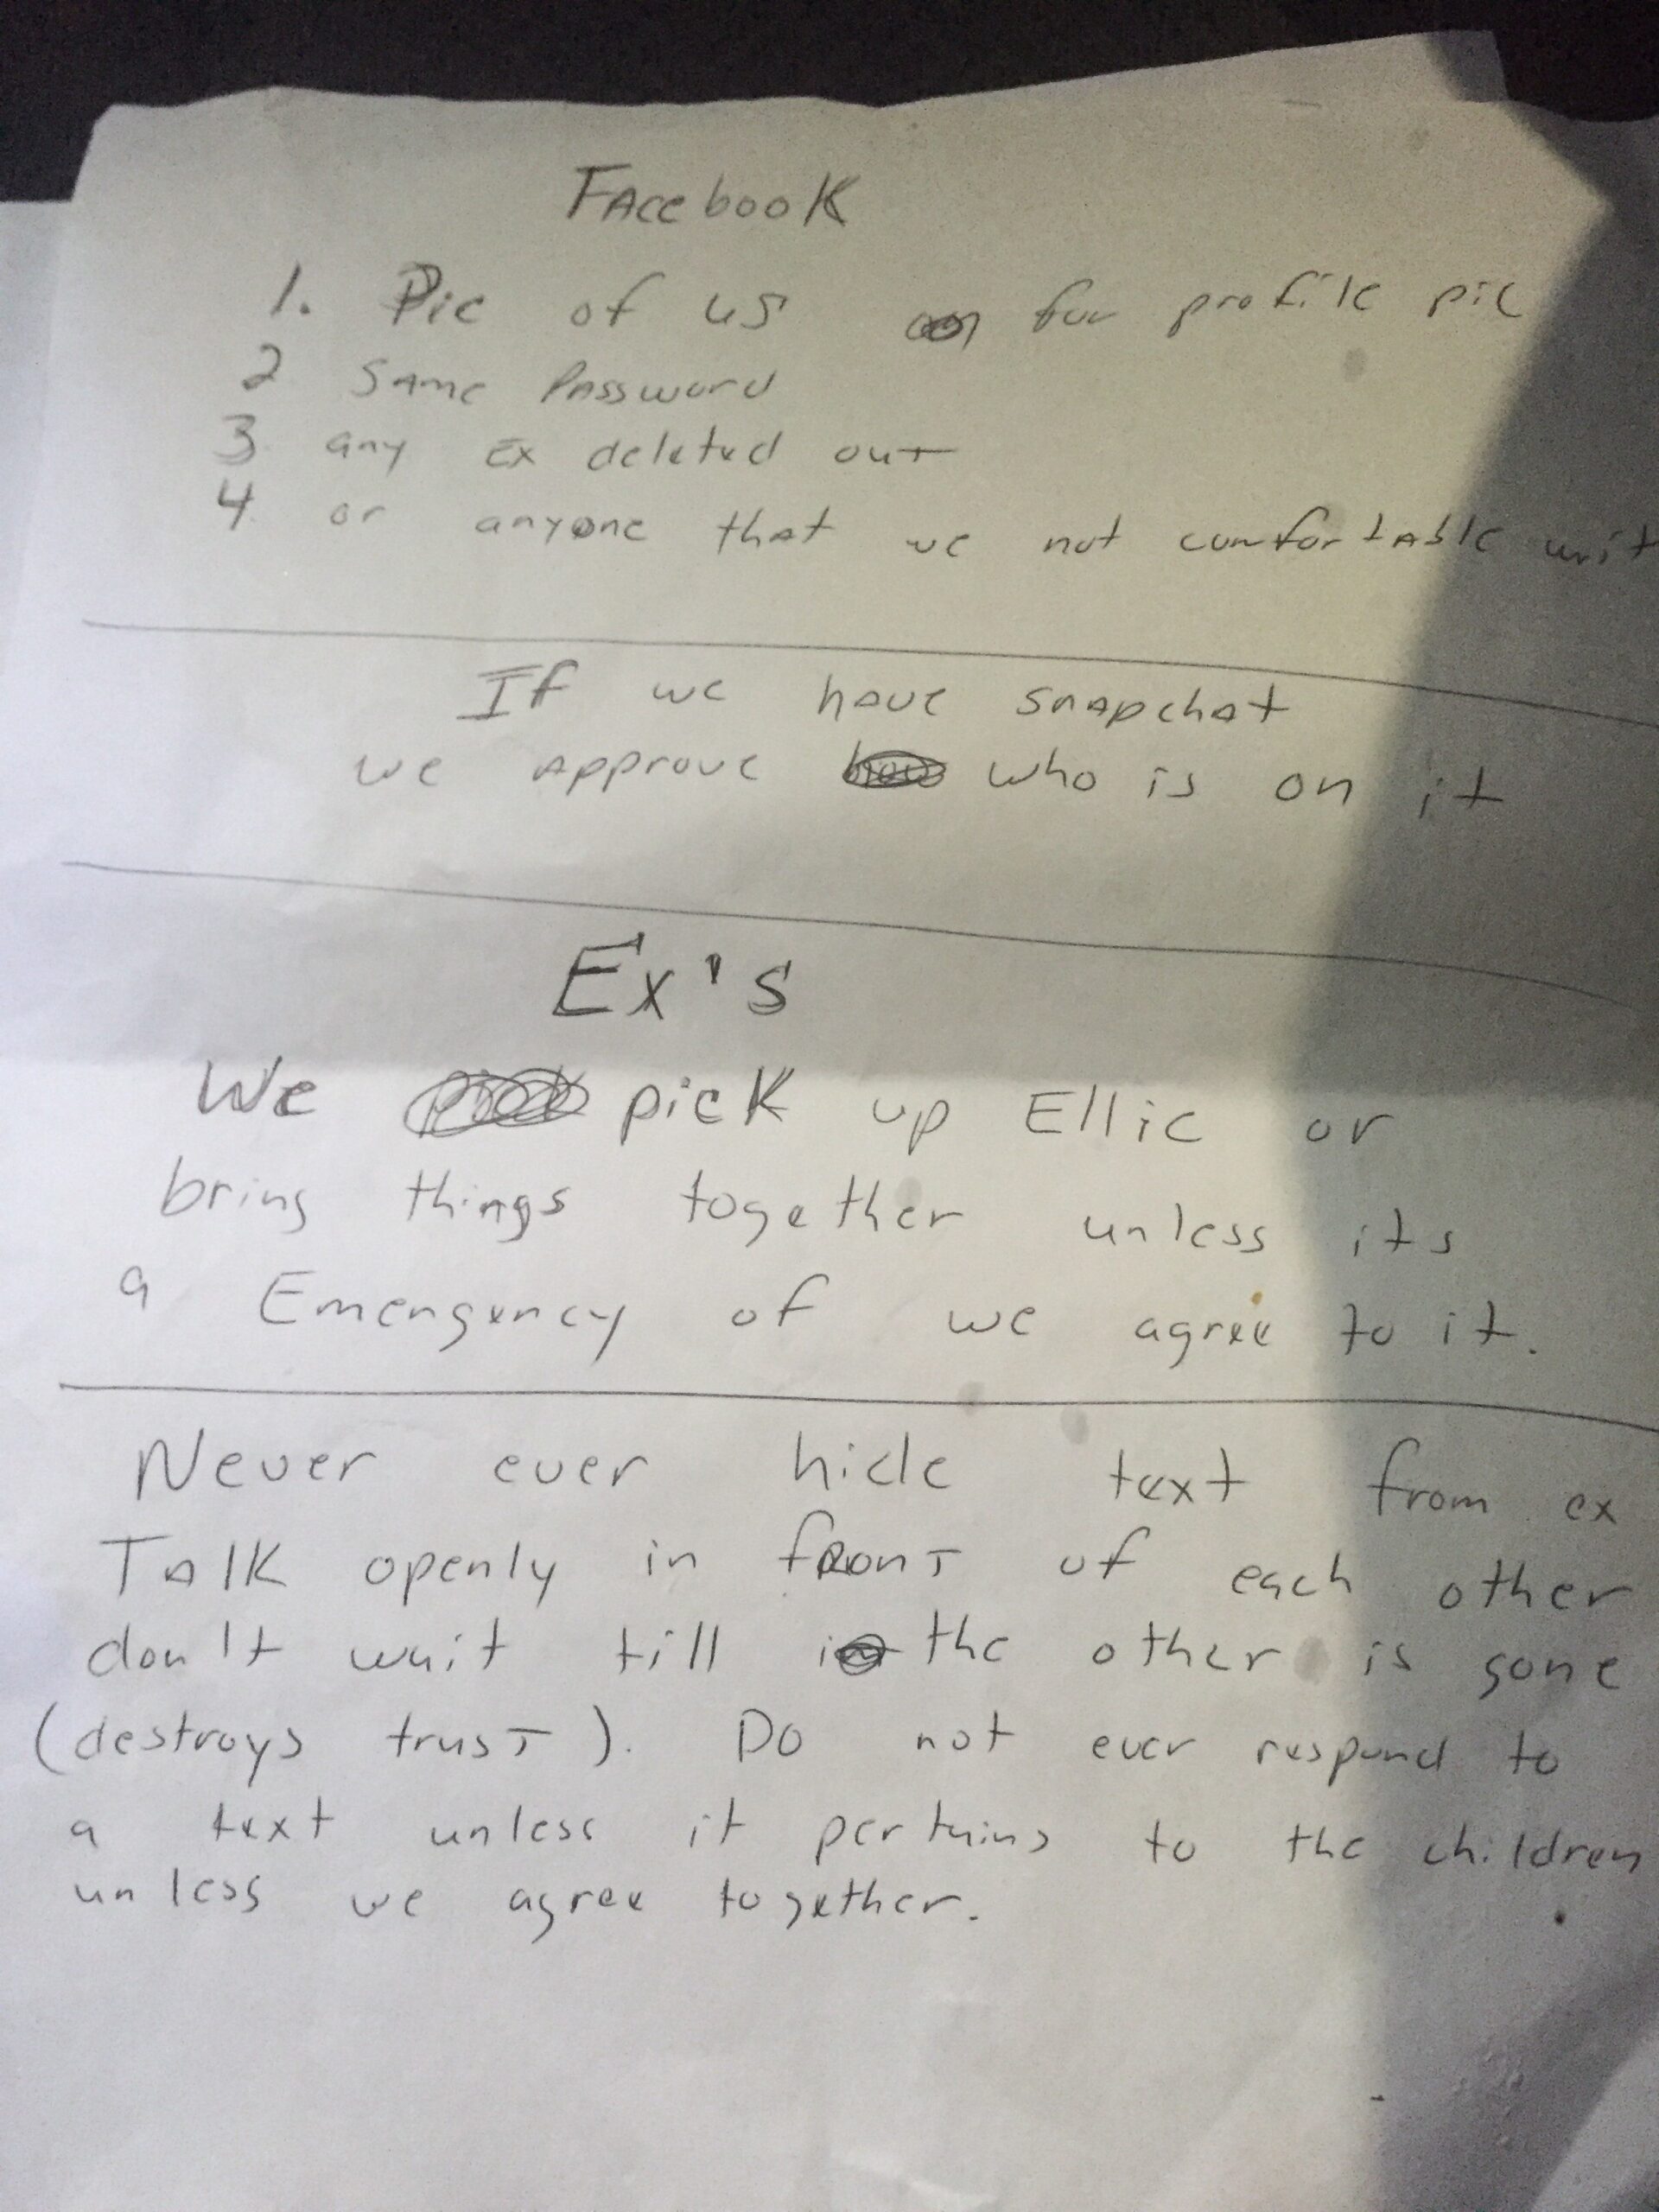 Facebook
1. Pic of us for profile pic
2 Same Password
3. any Ex deleted out
4. or anyone that we not comfortable wit
If we have snapchat
we approve who is on it
Ex's
We pick up Ellie or
bring things together unless its
a Emergency of we agree to it.
Never ever hide text from ex
Talk openly in front of each other
don't wait till the other is gone
(destroys trust). Do not ever respond to
a text unless it pertains to the children
unless we agree together.